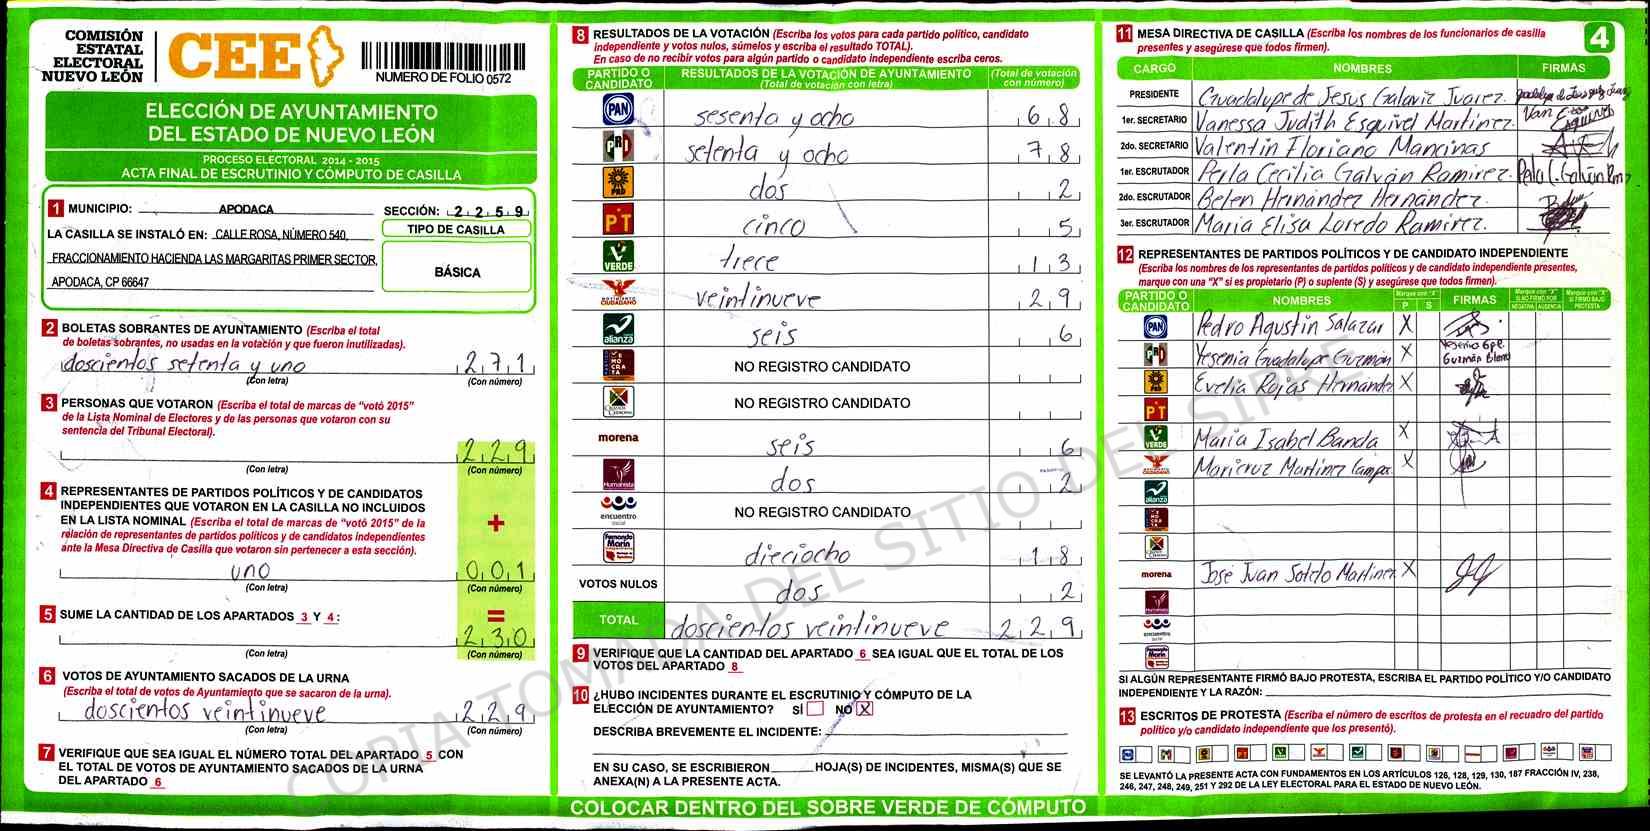 COMISIÓN
ESTATAL
ELECTORAL
NUEVO LEÓN
CEE
NUMERO DE FOLIO 0572
ELECCIÓN DE AYUNTAMIENTO
DEL ESTADO DE NUEVO LEÓN
PROCESO ELECTORAL 2014 - 2015
ACTA FINAL DE ESCRUTINIO Y CÓMPUTO DE CASILLA
1 MUNICIPIO: APODACA SECCIÓN: 2 2 5 9
LA CASILLA SE INSTALÓ EN: CALLE ROSA, NÚMERO 540,
FRACCIONAMIENTO HACIENDA LAS MARGARITAS PRIMER SECTOR,
APODACA, CP 66647
TIPO DE CASILLA
BÁSICA
2 BOLETAS SOBRANTES DE AYUNTAMIENTO (Escriba el total
de boletas sobrantes, no usadas en la votación y que fueron inutilizadas).
doscientos setenta y uno 2 7 1
(Con letra) (Con número)
3 PERSONAS QUE VOTARON (Escriba el total de marcas de "votó 2015"
de la Lista Nominal de Electores y de las personas que votaron con su
sentencia del Tribunal Electoral).
2 2 9
(Con letra) (Con número)
4 REPRESENTANTES DE PARTIDOS POLÍTICOS Y DE CANDIDATOS
INDEPENDIENTES QUE VOTARON EN LA CASILLA NO INCLUIDOS
EN LA LISTA NOMINAL (Escriba el total de marcas de "votó 2015" de la
relación de representantes de partidos políticos y de candidatos independientes
ante la Mesa Directiva de Casilla que votaron sin pertenecer a esta sección).
+
uno 0 0 1
(Con letra) (Con número)
5 SUME LA CANTIDAD DE LOS APARTADOS 3 Y 4 : =
2 3 0
(Con letra) (Con número)
6 VOTOS DE AYUNTAMIENTO SACADOS DE LA URNA
(Escriba el total de votos de Ayuntamiento que se sacaron de la urna).
doscientos veintinueve 2 2 9
(Con letra) (Con número)
7 VERIFIQUE QUE SEA IGUAL EL NÚMERO TOTAL DEL APARTADO 5 CON
EL TOTAL DE VOTOS DE AYUNTAMIENTO SACADOS DE LA URNA
DEL APARTADO 6
8 RESULTADOS DE LA VOTACIÓN (Escriba los votos para cada partido político, candidato
independiente y votos nulos, súmelos y escriba el resultado TOTAL).
En caso de no recibir votos para algún partido o candidato independiente escriba ceros.
PARTIDO O CANDIDATO RESULTADOS DE LA VOTACIÓN DE AYUNTAMIENTO (Total de votación con letra) (Total de votación con número)
PAN sesenta y ocho 6 8
PRI setenta y ocho 7 8
PRD dos 2
PT cinco 5
VERDE trece 1 3
MOVIMIENTO CIUDADANO veintinueve 2 9
alianza seis 6
NO REGISTRO CANDIDATO
NO REGISTRO CANDIDATO
morena seis 6
Humanista dos 2
encuentro social NO REGISTRO CANDIDATO
Fernando Marín dieciocho 1 8
VOTOS NULOS dos 2
TOTAL doscientos veintinueve 2 2 9
9 VERIFIQUE QUE LA CANTIDAD DEL APARTADO 6 SEA IGUAL QUE EL TOTAL DE LOS
VOTOS DEL APARTADO 8
10 ¿HUBO INCIDENTES DURANTE EL ESCRUTINIO Y CÓMPUTO DE LA
ELECCIÓN DE AYUNTAMIENTO? SÍ NO X
DESCRIBA BREVEMENTE EL INCIDENTE:
EN SU CASO, SE ESCRIBIERON HOJA(S) DE INCIDENTES, MISMA(S) QUE SE
ANEXA(N) A LA PRESENTE ACTA.
COLOCAR DENTRO DEL SOBRE VERDE DE CÓMPUTO
11 MESA DIRECTIVA DE CASILLA (Escriba los nombres de los funcionarios de casilla
presentes y asegúrese que todos firmen).
4
CARGO NOMBRES FIRMAS
PRESIDENTE Guadalupe de Jesus Galaviz Juarez
1er. SECRETARIO Vanessa Judith Esquivel Martínez Van Esquivel
2do. SECRETARIO Valentin Floriano Mancinas
1er. ESCRUTADOR Perla Cecilia Galván Ramirez Perla C. Galván Rmz
2do. ESCRUTADOR Belen Hernández Hernández
3er. ESCRUTADOR Maria Elisa Loredo Ramirez
12 REPRESENTANTES DE PARTIDOS POLÍTICOS Y DE CANDIDATO INDEPENDIENTE
(Escriba los nombres de los representantes de partidos políticos y de candidato independiente presentes,
marque con una "X" si es propietario (P) o suplente (S) y asegúrese que todos firmen).
PARTIDO O CANDIDATO NOMBRES Marque con "X" P S FIRMAS Marque con "X" SI NO FIRMÓ POR NEGATIVA AUSENCIA Marque con "X" SI FIRMÓ BAJO PROTESTA
PAN Pedro Agustin Salazar X
PRI Yesenia Guadalupe Guzmán X Yesenia Gpe. Guzmán
PRD Evelia Rojas Hernandez X
PT
VERDE Maria Isabel Banda X
Maricruz Martinez Campos X
alianza
morena José Juan Sotelo Martinez X
Humanista
encuentro
SI ALGÚN REPRESENTANTE FIRMÓ BAJO PROTESTA, ESCRIBA EL PARTIDO POLÍTICO Y/O CANDIDATO
INDEPENDIENTE Y LA RAZÓN:
13 ESCRITOS DE PROTESTA (Escriba el número de escritos de protesta en el recuadro del partido
político y/o candidato independiente que los presentó).
SE LEVANTÓ LA PRESENTE ACTA CON FUNDAMENTOS EN LOS ARTÍCULOS 126, 128, 129, 130, 187 FRACCIÓN IV, 238,
246, 247, 248, 249, 251 Y 292 DE LA LEY ELECTORAL PARA EL ESTADO DE NUEVO LEÓN.
COPIA TOMADA DEL SITIO DEL SIPRE